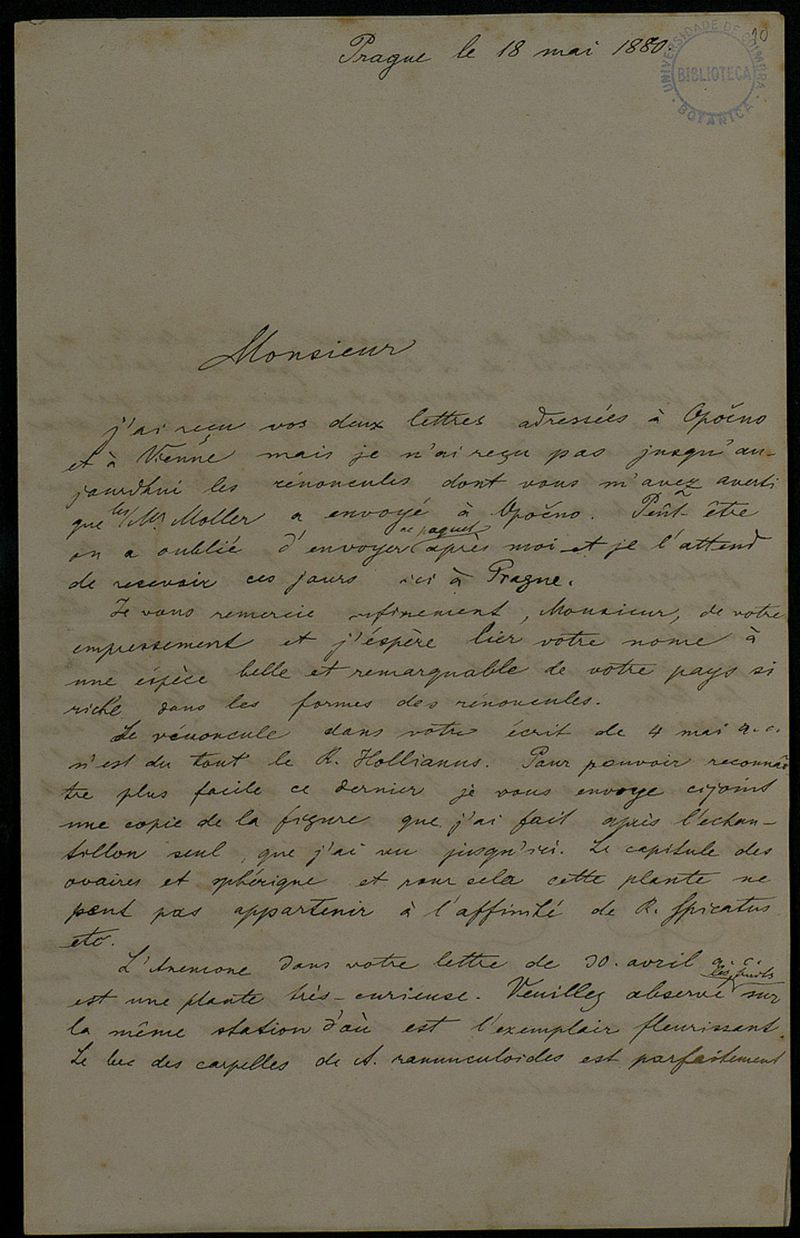 10
UNIVERSIDADE DE COIMBRA
BIBLIOTECA
BOTANICA
Prague le 18 mai 1880.
Monsieur
j'ai reçu vos deux lettres adressées à Opočno
et à Vienne mais je n'ai reçu pas jusqu'au-
jourdhui les rénoncules dont vous m'avez averti
que les Mr Moller a envoyé à Opočno. Peut être
ce paquet
on a oublié d'envoyer après moi et je l'attend
de recevoir ces jours ici à Prague.
Je vous remercie infinement, Monsieur, de votre
empressement et j'éspère lier votre nome à
une éspèce belle et remarquable de votre pays si
riche dans les formes des rénoncules.
Le rénoncule dans votre écrit de 4 mai a.c.
n'est du tout le R. Hollianus. Pour pouvoir reconnaî
tre plus facile ce dernier je vous envoye cijoint
une copie de la figure que j'ai fait après l'echan-
tillon seul, que j'ai vu jusqu'ici. Le capitule des
ovaires et sphérique et pour cela cette plante ne
peut pas appartenir à l'affinité de R. spicatus
etc.
L'Anemone dans votre lettre de 30. avril a.c.
les fruits
est une plante trés-curieuse. Veuillez observé sur
la même station d'où est l'exemplair fleurissant.
Le bec des carpelles de A. ranunculoides est parfaitement